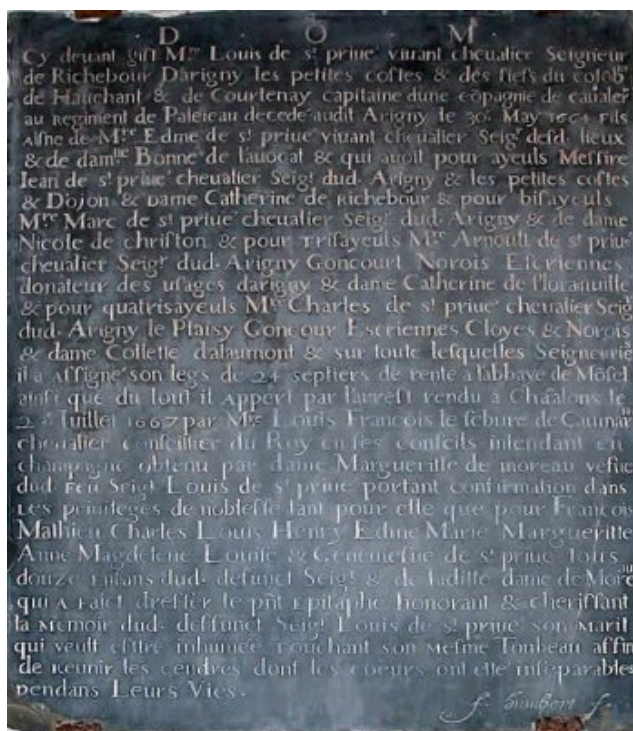 D O M
Cy deuant gist M.re Louis de st priue' viuant cheualier Seigneur
de Richebour Darigny les petites costes & des fiefs du
de Hauchant & de Courtenay capitaine dune cōpagnie de caualer
au Regiment de Paleicau decede' audit Arigny le 30. May 1661 Fils
Aisne de M.re Edme de st priue' viuant cheualier Seigr desd. lieux
& de damlle Bonne de lauocat & qui auoit pour ayeuls Messire
Iean de st priue' cheualier Seigr dud. Arigny & les petites costes
& Dojon & Dame Catherine de Richebour & pour bisayeuls
M.re Marc de st priue' cheualier Seigr dud. Arigny & de dame
Nicole de christon & pour Trisayeuls M.re Arnoult de st priue
cheualier Seigr dud. Arigny Goncourt Norois Escriennes
donateur des usages darigny & dame Catherine de floranuille
& pour quatrisayeuls M.re Charles de st priue' cheualier Seig
dud. Arigny le Plaisy Goncour Escriennes Cloyes & Norois
& dame Collette dalaumont & sur toute lesquelles Seigneurie
il a Assigne' son legs de 24 septiers de rente a labbaye de
ainsi que du tout il Appert par larrest rendu a Chaalons le
Iuillet 1667 par M.re Louis Francois le febure de Caumar
cheualier conseillier du Roy en ses conseils intendant en
champagne obtenu par dame Margueritte de moreau vefue
dud. Feu Seigr Louis de st priue' portant confirmation dans
Les priuileges de noblesse tant pour elle que pour Francois
Mathieu Charles Louis Henry Edme Marie Margueritte
Anne Magdelene Louise & Geneuiefue de st priue' tous
douze Enfans dud. defunct Seigr & de laditte dame de More
qui A Faict dresser le pn̄t Epitaphe honorant & cherissant
la Memoir dud. deffunct Seigr Louis de st priue' son Marit
qui veult estre inhumee Touchant son Mesme Tonbeau affin
de Reunir les cendres dont les coeurs ont elle' inseparables
pendans Leurs Vies.
f. humbert f.